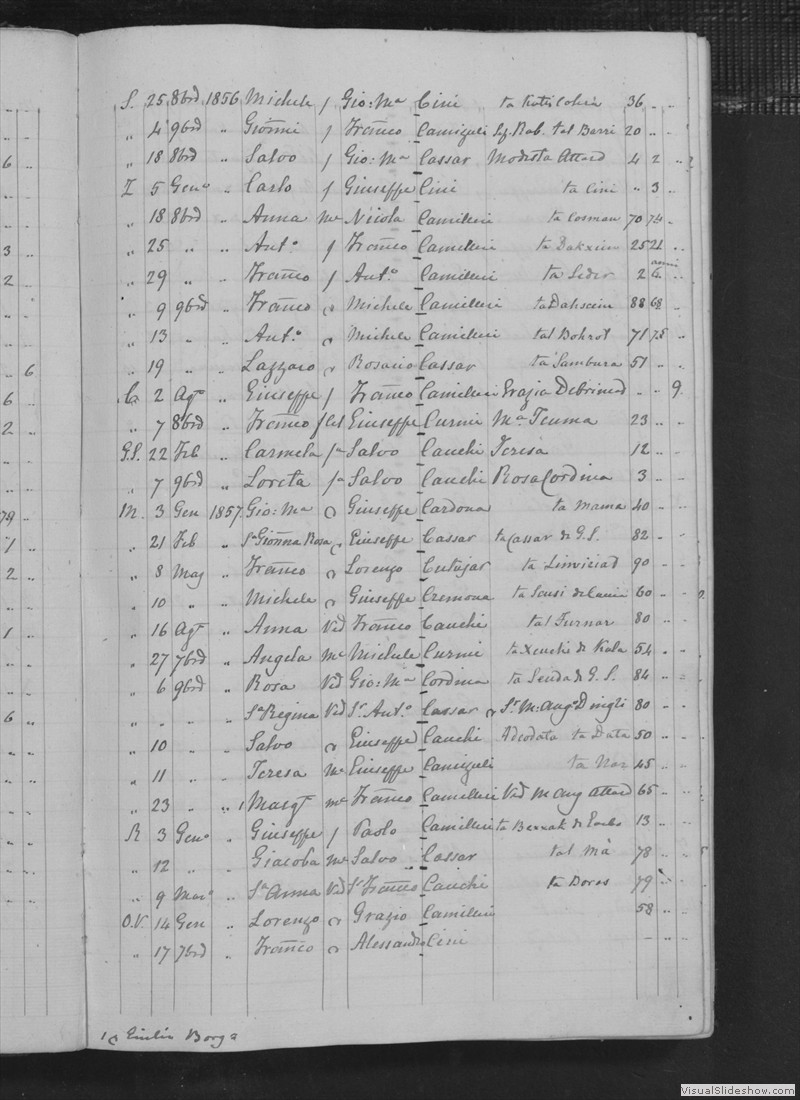 S. 25 8brē 1856 Michele f Gio: Mᵃ Cini 36 .. ..
„ 4 9brē „ Giōnni f Franco Camiguli tal Barri 20 .. ..
„ 18 8brē „ Salvo f Gio: Mᵃ Cassar Modesta Attard 4 2 ..
Z 5 Genᵒ „ Carlo f Giuseppe Cini ta Cini „ 3 ..
„ 18 8brē „ Anna Mᵉ Nicola Camilleri ta Cosman 70 74 ..
„ 25 „ „ Antᵒ f Franco Camilleri 25 21 ..
„ 29 „ „ Franco f Antᵒ Camilleri ta Leder 2 6 ..
anni
„ 9 9brē „ Franco Michele Camilleri 88 68 ..
„ 13 „ „ Antᵒ Michele Camilleri tal Bohrot 71 78 ..
„ 19 „ Lazzaro Rosario Cassar ta Sambura 51 .. ..
2 Agᵗ „ Giuseppe f Franco Camilleri Grazia Debrincd .. .. 9
„ 7 8brē „ Franco Giuseppe Curmi Mᵃ Teuma 23 .. ..
G.S. 22 Feb „ Carmela fᵃ Salvo Cauchi Teresa 12 .. ..
„ 7 9brē „ Loreta fᵃ Salvo Cauchi Rosa Cordina 3 .. ..
M. 3 Gen 1857 Gio: Mᵃ Giuseppe Cardona ta Mama 40 .. ..
„ 21 Feb „ Sᵃ Giōnna Rosa Giuseppe Cassar ta Cassar di G.S. 82 .. ..
„ 8 Mag „ Franco Lorenzo Cutajar ta Linviciad 90 .. ..
„ 10 „ „ Michele Giuseppe Cremona 60 .. ..
„ 16 Agᵗ „ Anna Vid Franco Cauchi tal Furnar 80 .. ..
„ 27 7brē „ Angela Mᵉ Michele Curmi ta Xeuchi di Kala 54 .. ..
„ 6 9brē „ Rosa Vid Gio: Mᵃ Cordina ta Seuda di G.S. 84 .. ..
„ „ „ Sᵃ Regina Vid Sʳ Antᵒ Cassar Sʳ M: Angᵒ Dingli 80 .. ..
„ 10 „ „ Salvo Giuseppe Cauchi Adeodata ta Data 50 .. ..
„ 11 „ „ Teresa Mᵉ Giuseppe Camiguli ta Nar 45 .. ..
„ 23 „ „ 1 Margᵗ mᵉ Franco Camilleri Vid M Ang Attard 65 .. ..
R 3 Genᵒ „ Giuseppe f Paolo Camilleri ta Berrak 13 .. ..
„ 12 „ „ Giacoba Mᵉ Salvo Cassar tal Mà 78 .. ..
„ 9 Marᵒ „ Sᵃ Anna Vid Sʳ Franco Cauchi ta Doros 79 .. ..
O.V. 14 Gen „ Lorenzo Grazio Camilleri 58 .. ..
„ 17 7brē „ Franco Alessandro Cini – .. ..
Borg
VisualSlideshow.com